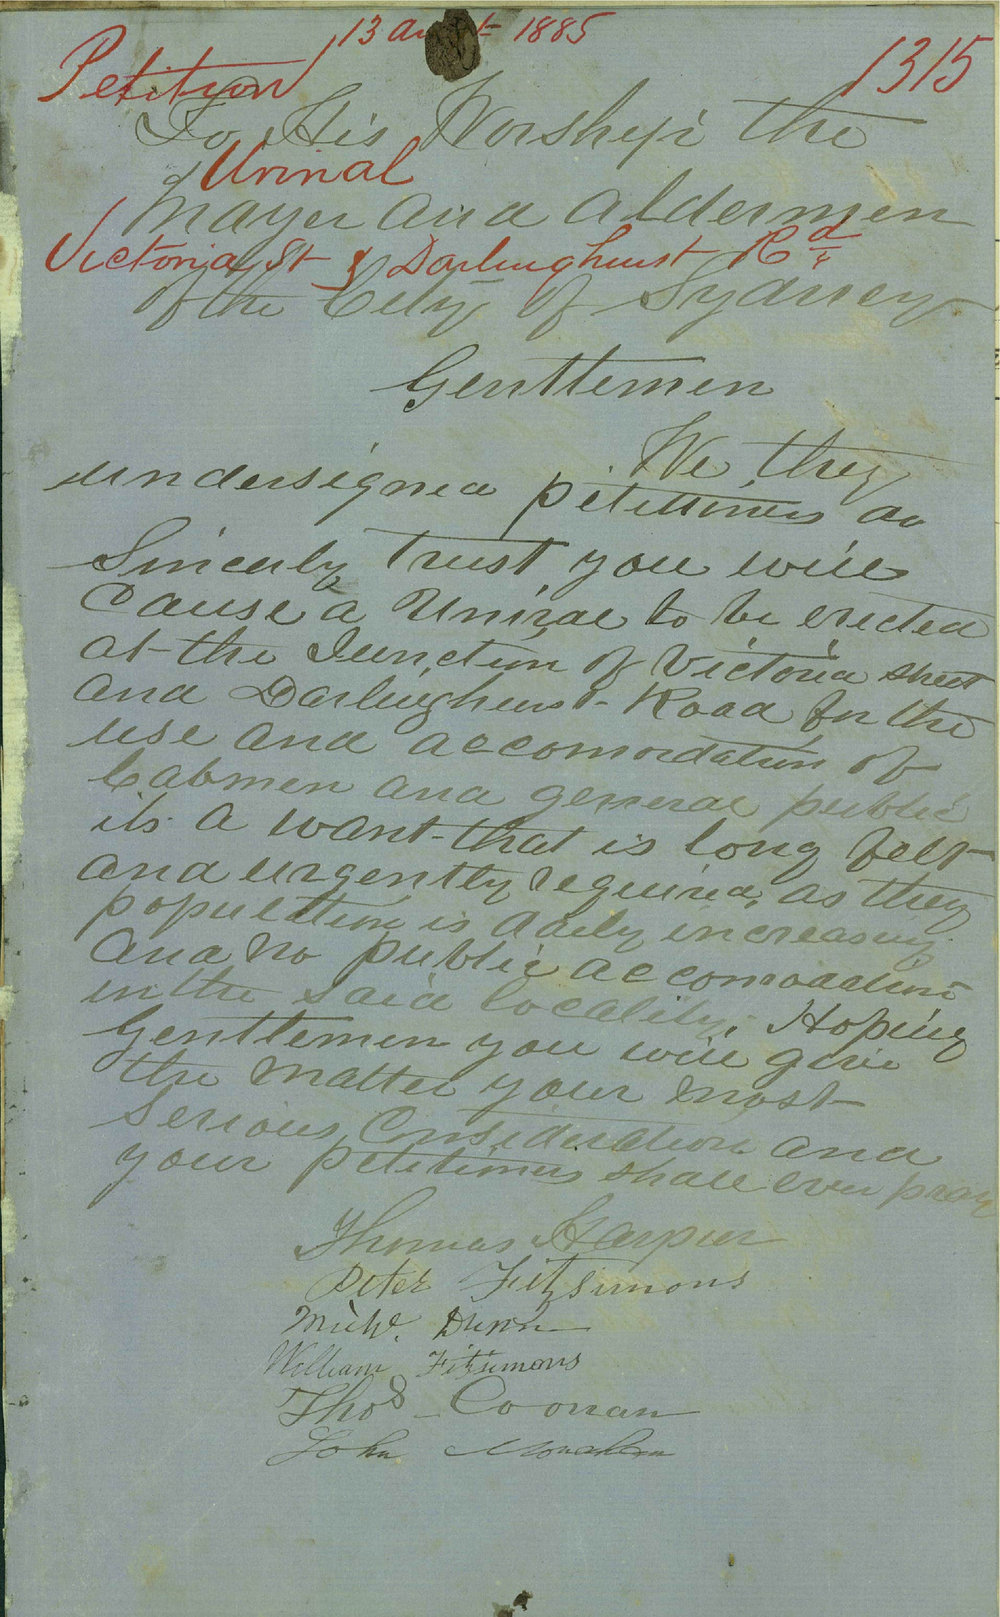 13 August 1885
Petition
1315
To His Worship the
Urinal
Mayer and Aldermen
Victoria St & Darlinghurst Rd
of the City of Sydney
Gentlemen
We they
undersigned petitiners do
Sincerly trust you will
Cause a Uniral to be erected
at the Junction of Victoria street
and Darlinghurst Road for the
use and accomordation of
Cabmen and general public
its a want that is long felt
and urgently required, as they
population is daily increasing
and no public accomodation
in the said locality; Hoping
Gentlemen you will give
the matter your most
Serious Consideration and
your petitiners shall ever pray
Thomas Harper
Peter Fitzsimons
Michl. Dunn
William Fitzsimons
Thos Coonan
John Monahan